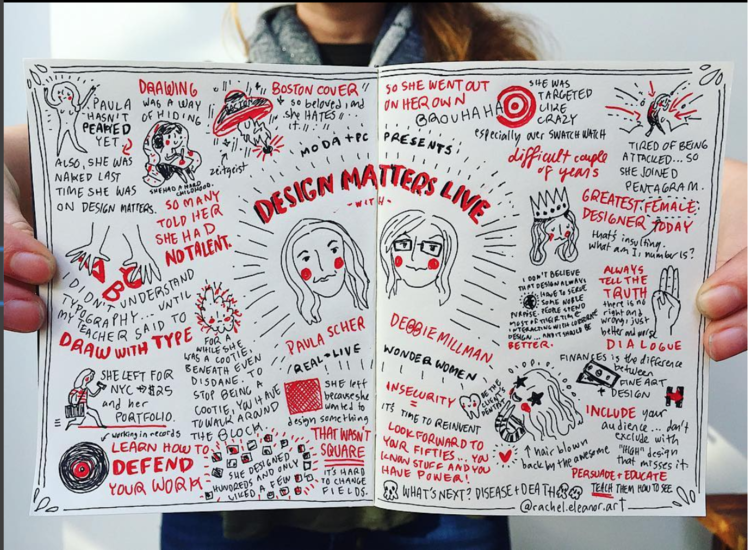 PAULA
HASN'T
PEAKED
YET
ALSO, SHE WAS
NAKED LAST
TIME SHE WAS
ON DESIGN MATTERS.
DRAWING
WAS A WAY
OF HIDING
SHE HAD A HARD
CHILDHOOD.
SO MANY
TOLD HER
SHE HAD
NO TALENT.
BOSTON COVER"
so beloved, and
she HATES
IT.
zeitgeist
MODA + PC
PRESENTS
DESIGN MATTERS LIVE
-WITH-
A B C
I DIDN'T UNDERSTAND
TYPOGRAPHY... UNTIL
MY TEACHER SAID TO
DRAW WITH TYPE
FOR A
WHILE SHE
WAS A COOTIE,
BENEATH EVEN
DISDANE. TO
STOP BEING A
COOTIE, YOU HAVE
TO WALK AROUND
THE BLOCK.
SHE LEFT FOR
NYC $25
and her
PORTFOLIO.
working in records
LEARN HOW TO
DEFEND
YOUR WORK
SHE DESIGNED
HUNDREDS AND ONLY
LIKED A FEW
PAULA SCHER
REAL-LIVE
SHE left
because she
wanted to
design something
THAT WASN'T
SQUARE
IT'S HARD
TO CHANGE
FIELDS.
SO SHE WENT OUT
ON HER OWN
BROUHAHA
SHE WAS
TARGETED
LIKE
CRAZY
especially over SWATCH WATCH
difficult couple
of years
TIRED OF BEING
ATTACKED... SO
SHE JOINED
PENTAGRAM.
GREATEST FEMALE
DESIGNER TODAY
that's insulting.
what am I, number 15?
I DON'T BELIEVE
THAT DESIGN ALWAYS
HAVE TO SERVE
SOME NOBLE
PURPOSE. PEOPLE SPEND
MOST OF THEIR TIME
INTERACTING WITH
DESIGN... AND IT SHOULD BE
BETTER.
ALWAYS
TELL THE
TRUTH
there is no
right and
wrong, just
better and worse
DIALOGUE
DEBBIE MILLMAN
WONDER WOMEN
INSECURITY
AS THE
CLIENT
DENTIST
IT'S TIME TO REINVENT
LOOK FORWARD TO
YOUR FIFTIES... YOU
KNOW STUFF AND YOU
HAVE POWER!
hair blown
back by the awesome
FINANCES is the difference
between
FINE ART
+ DESIGN
INCLUDE your
audience... don't
exclude with
"HIGH" design
that misses it
PERSUADE + EDUCATE
TEACH THEM HOW TO SEE
WHAT'S NEXT? DISEASE + DEATH
@rachel.eleanor.art